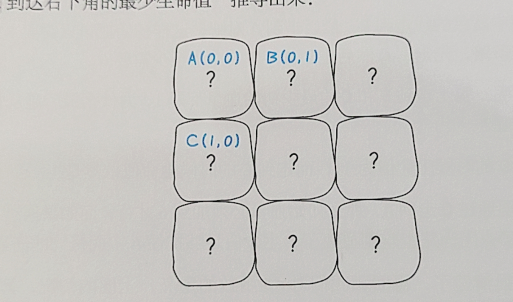 到达右下角的最少生命值”推导出来:
A(0,0) B(0,1)
? ? ?
C(1,0)
? ? ?
? ? ?